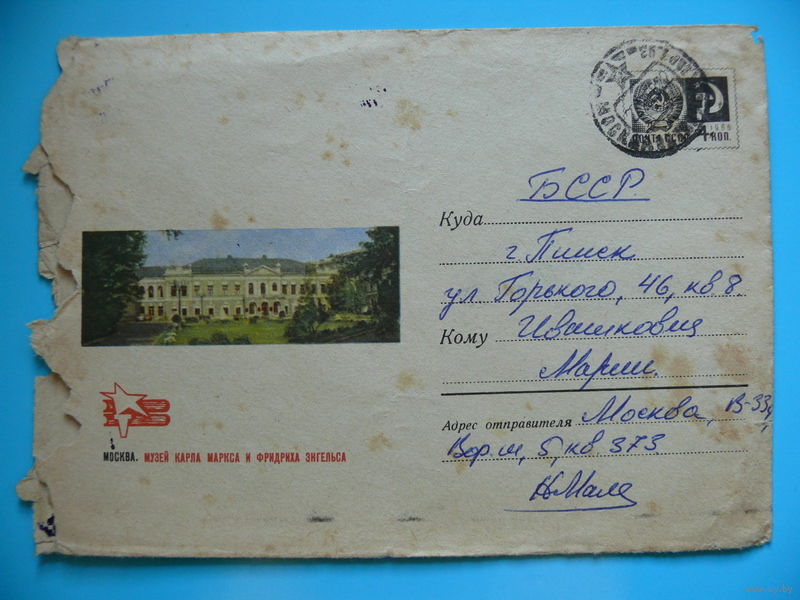 МОСКВА
ПОЧТА СССР
1966
4 КОП.
БССР.
Куда
г. Пинск
ул Горького, 46, кв 8.
Кому Ивашкович
Марии.
Адрес отправителя Москва, В-334,
Вор. ш, 5, кв 373
МОСКВА. МУЗЕЙ КАРЛА МАРКСА И ФРИДРИХА ЭНГЕЛЬСА